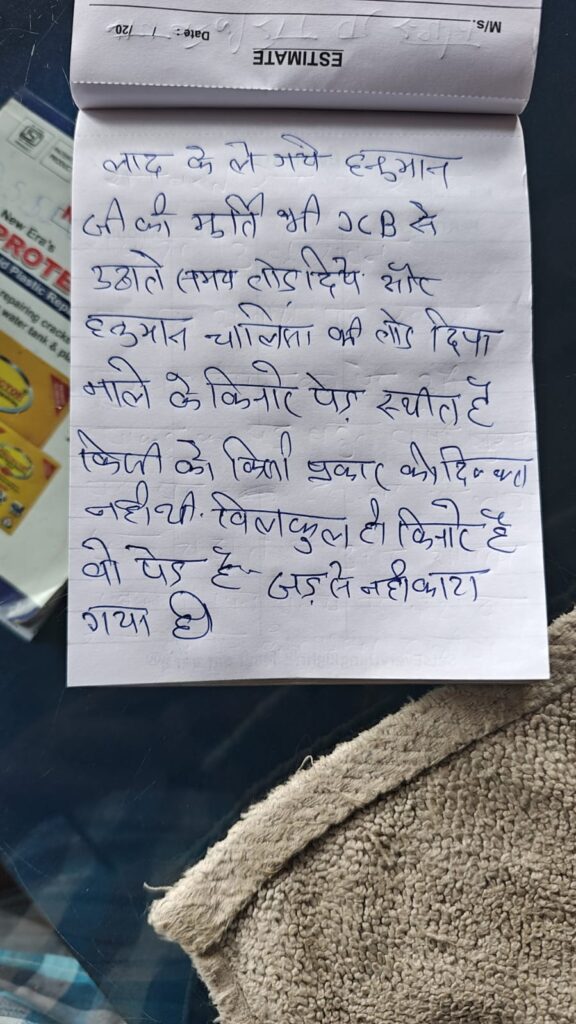 M/s.
Date : / /20
ESTIMATE
लाद के ले गये हनुमान
जी की मुर्ति भी JCB से
उठाते समय तोड़ दिये और
हनुमान चालिसा की तोड़ दिया
नाले के किनारे पेड़ स्थीत है
किसी को किसी प्रकार की दिक्कत
नही थी. बिलकुल ही किनारे है
वो पेड़ है जड़ से नही काटा
गया है।
New Era's
PROTE
d Plastic Rep
repairing cracks
water tank & p